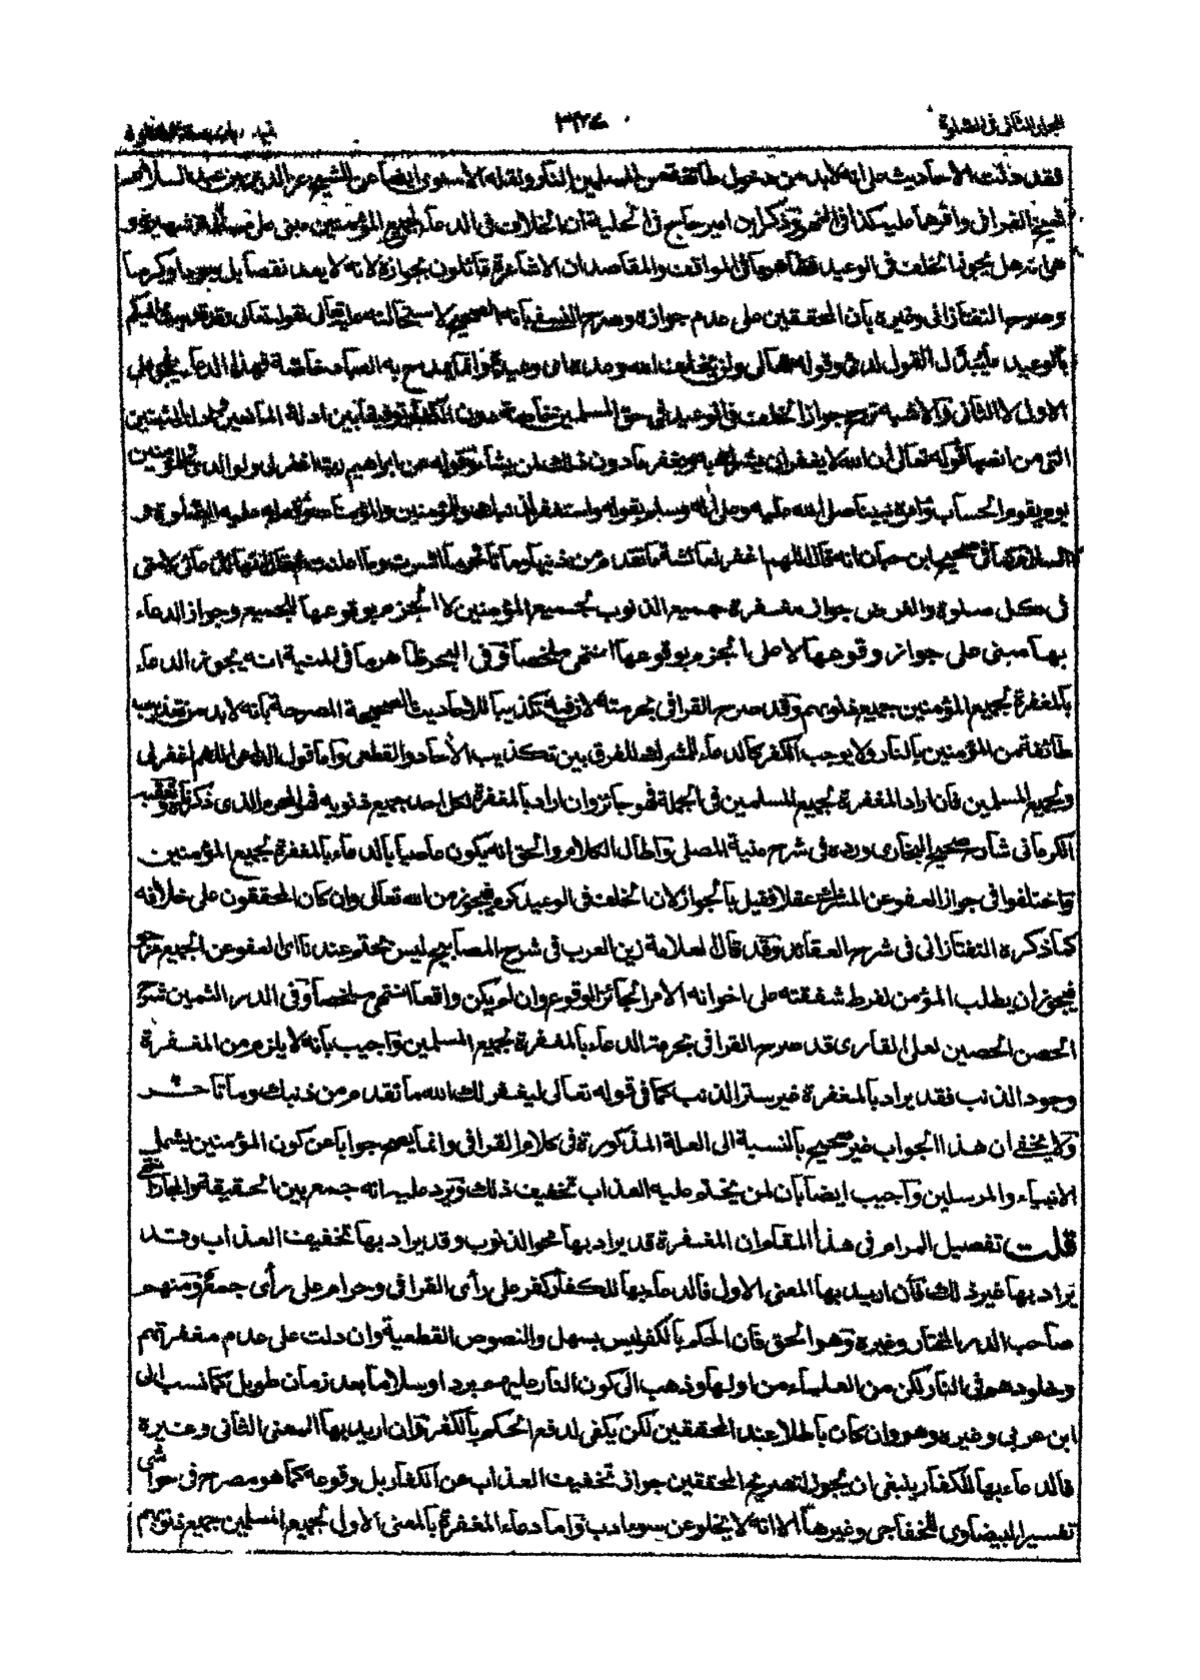 فقد دلت الأحاديث على انه لابد من دخول طائفة من المسلمين النار ونقله الأسنوى ايضا عن الشيخ عز الدين بن عبد السلام
القرافى واقرها عليه كذا فى وذكر ابن امير حاج فى الحلية ان الخلاف فى الدعاء لجميع المؤمنين مبنى على
هى انه هل يجوز الخلف فى الوعيد فظاهر ما فى المواقف والمقاصد ان الاشاعرة قائلون بجوازه لانه لا يعد نقصا بل جودا وكرما
وصرح التفتازانى وغيره بأن المحققين على عدم جوازه وصرح النسفى بأنه الصحيح لاستحالته عليه تعالى لقوله تعالى وقد قدمت اليكم
بالوعيد ما يبدل القول لدى وقوله تعالى ولن يخلف الله وعده اى وعيده وانما يمدح به العباد خاصة فهذا الدعاء يجوز على
الاول لا الثانى والاشبه ترجح جواز الخلف فى الوعيد فى حق المسلمين خاصة دون الكفار توفيقا بين ادلة المانعين وادلة المثبتين
التى من انصها قوله تعالى ان الله لا يغفر ان يشرك به ويغفر ما دون ذلك لمن يشاء وقوله عن ابراهيم ربنا اغفر لى ولوالدى وللمؤمنين
يوم يقوم الحساب وامره نبينا صلى الله عليه وعلى اله وسلم بقوله واستغفر لذنبك وللمؤمنين والمؤمنات عليه الصلوة و
السلام كما فى صحيح ابن حبان انه قال اللهم اغفر لعائشة ما تقدم من ذنبها وما تأخر وما اسرت وما اعلنت ثم قال انها لدعائى لامتى
فى كل صلوة والغرض جواز مغفرة جميع الذنوب لجميع المؤمنين لا الجزم بوقوعها للجميع وجواز الدعاء
بها مبنى على جواز وقوعها لا على الجزم بوقوعها انتهى ملخصا وفى البحر ظاهر ما فى المنية انه يجوز الدعاء
بالمغفرة لجميع المؤمنين جميع ذنوبهم وقد صرح القرافى بحرمته لان فيه تكذيبا للاحاديث الصحيحة المصرحة بأنه لابد من تعذيب
طائفة من المؤمنين بالنار ولا يوجب الكفر كالدعاء للمشرك للفرق بين تكذيب الأحاد والقطعى واما قول الداعى اللهم اغفر لى
ولجميع المسلمين فان اراد المغفرة لجميع المسلمين فى الجملة فهو جائز وان اراد المغفرة لكل احد جميع ذنوبه فهو المحرم الذى ذكرناه وتعقبه
الكرمانى شارح صحيح البخارى ورده فى شرح منية المصلى واطال الكلام والحق انه يكون عاصيا بالدعاء بالمغفرة لجميع المؤمنين
واختلفوا فى جواز العفو عن المشرك عقلا فقيل بالجواز لان الخلف فى الوعيد كرم فيجوز من الله تعالى وان كان المحققون على خلافه
كما ذكره التفتازانى فى شرح العقائد وقد قال العلامة زين العرب فى شرح المصابيح ليس بحتم عندنا اى العفو عن الجميع
فيجوز ان يطلب المؤمن لفرط شفقته على اخوانه الامر الجائز الوقوع وان لم يكن واقعا انتهى ملخصا وفى الدر الثمين شرح
الحصن الحصين لعلى القارى قد صرح القرافى بحرمة الدعاء بالمغفرة لجميع المسلمين واجيب بانه لا يلزم من المغفرة
وجود الذنب فقد يراد بالمغفرة غير ستر الذنب كما فى قوله تعالى ليغفر لك الله ما تقدم من ذنبك وما تأخر
ولا يخفى ان هذا الجواب غير صحيح بالنسبة الى العلة المذكورة فى كلام القرافى وانما يصح جوابا عن كون المؤمنين يشمل
الانبياء والمرسلين واجيب ايضا بان لمن يختم عليه العذاب تخفيف ذلك ويرد عليه انه جمع بين الحقيقة والمجاز انتهى
قلت تفصيل المرام فى هذا المقام ان المغفرة قد يراد بها محو الذنوب وقد يراد بها تخفيف العذاب وقد
يراد بها غير ذلك فان اريد بها المعنى الاول فالدعاء بها للكفار كفر على رأى القرافى وحرام على رأى جمع ومنهم
صاحب الدر المختار وغيره وهو الحق فان الحكم بالكفر ليس بسهل والنصوص القطعية وان دلت على عدم مغفرتهم
وخلودهم فى النار لكن من العلماء من اولها وذهب الى كون النار عليهم بردا وسلاما بعد زمان طويل كما نسب الى
ابن عربى وغيره وهو وان كان باطلا عند المحققين لكن يكفى لدفع الحكم بالكفر وان اريد بها المعنى الثانى وغيره
فالدعاء بها للكفار ينبغى ان يجوز لتصريح المحققين جواز تخفيف العذاب عن الكفار بل وقوعه كما هو مصرح فى حواشى
تفسير البيضاوى للخفاجى وغيرها الا انه لا يخلو عن سوء ادب واما دعاء المغفرة بالمعنى الاول لجميع المسلمين جميع ذنوبهم